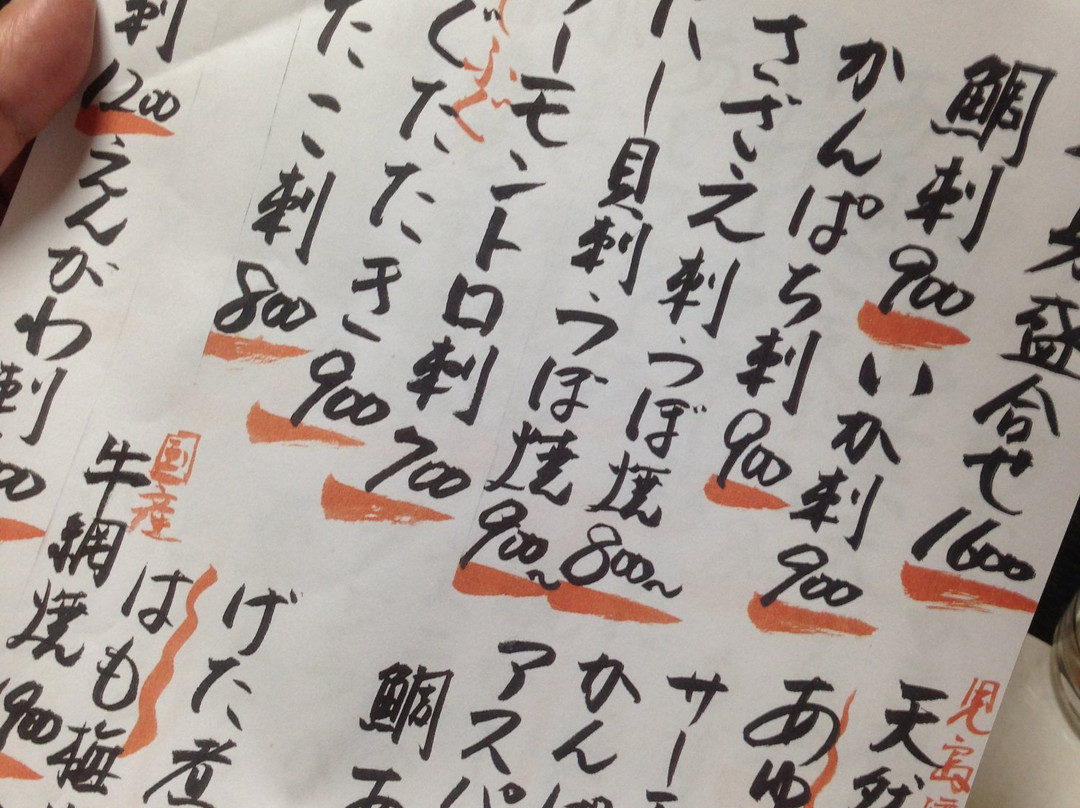 盛合せ 1600
鯛刺 900
いか刺 900
かんぱち刺 900
さざえ刺、つぼ焼 800~
ー貝刺、つぼ焼 900~
ーモントロ刺 700
ふぐ
ぐたたき 900
たこ刺 800
刺 1200
えんがわ刺
児島
天然
あゆ
サー
かんぱ
アスパ
鯛あ
げた煮
はも梅
国産
牛網焼 1900